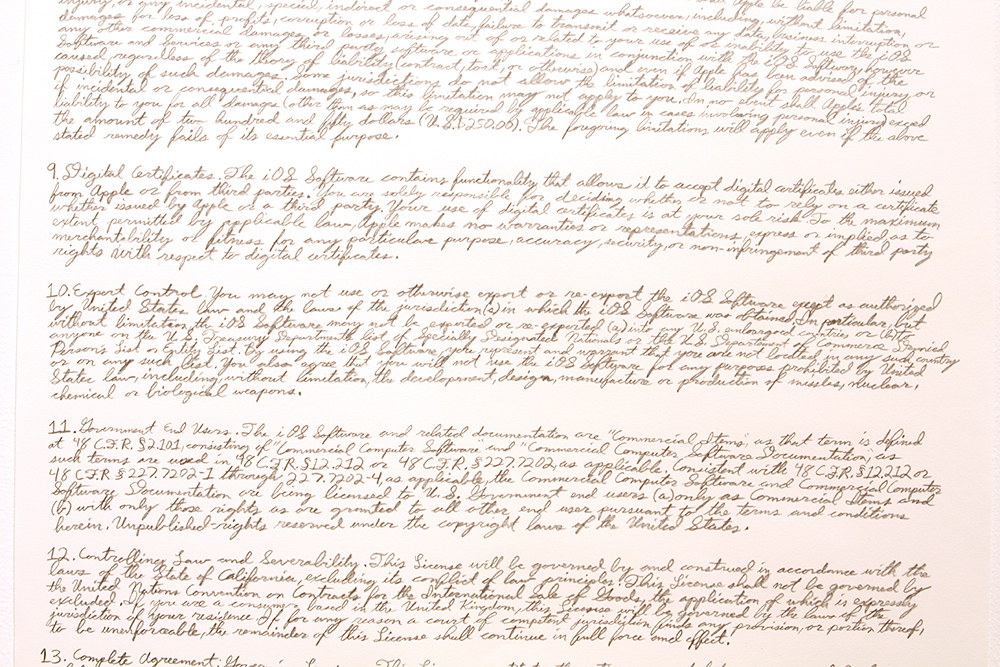 injury, or any incidental, special, indirect or consequential damages whatsoever, including, without limitation,
damages for loss of profits, corruption or loss of data, failure to transmit or receive any data, business interruption or
any other commercial damages or losses, arising out of or related to your use of or inability to use the iOS
Software and Services or any third party software or applications in conjunction with the iOS Software, however
caused, regardless of the theory of liability (contract, tort, or otherwise) and even if Apple has been advised of the
possibility of such damages. Some jurisdictions do not allow the limitation of liability for personal injury, or
if incidental or consequential damages, so this limitation may not apply to you. In no event shall Apple's total
liability to you for all damages (other than as may be required by applicable law in cases involving personal injury) exceed
the amount of two hundred and fifty dollars (U.S.$250.00). The foregoing limitations will apply even if the above
stated remedy fails of its essential purpose.
9. Digital Certificates. The iOS Software contains functionality that allows it to accept digital certificates either issued
from Apple or from third parties. You are solely responsible for deciding whether or not to rely on a certificate
whether issued by Apple or a third party. Your use of digital certificates is at your sole risk. To the maximum
extent permitted by applicable law, Apple makes no warranties or representations, express or implied as to
merchantability or fitness for any particular purpose, accuracy, security, or non-infringement of third party
rights with respect to digital certificates.
10. Export Control. You may not use or otherwise export or re-export the iOS Software except as authorized
by United States law and the laws of the jurisdiction(s) in which the iOS Software was obtained. In particular, but
without limitation, the iOS Software may not be exported or re-exported (a) into any U.S. embargoed countries or (b) to
anyone on the U.S. Treasury Department's list of Specially Designated Nationals or the U.S. Department of Commerce Denied
Person's List or Entity List. By using the iOS Software, you represent and warrant that you are not located in any such country
or on any such list. You also agree that you will not use the iOS Software for any purpose prohibited by United
States law, including, without limitation, the development, design, manufacture or production of missles, nuclear,
chemical or biological weapons.
11. Government End Users. The iOS Software and related documentation are "Commercial Items", as that term is defined
at 48 C.F.R. §2.101, consisting of "Commercial Computer Software" and "Commercial Computer Software Documentation", as
such terms are used in 48 C.F.R. §12.212 or 48 C.F.R. §227.7202, as applicable. Consistent with 48 C.F.R. §12.212 or
48 C.F.R §227.7202-1 through 227.7202-4, as applicable, the Commercial Computer Software and Commercial Computer
Software Documentation are being licensed to U.S. Government end users (a) only as Commercial Items and
(b) with only those rights as are granted to all other end user pursuant to the terms and conditions
herein. Unpublished-rights reserved under the copyright laws of the United States.
12. Controlling Law and Severability. This License will be governed by and construed in accordance with the
laws of the State of California, excluding its conflict of law principles. This License shall not be governed by
the United Nations Convention on Contracts for the International Sale of Goods, the application of which is expressly
excluded. If you are a consumer based in the United Kingdom, this License will be governed by the laws of the
jurisdiction of your residence. If for any reason a court of competent jurisdiction finds any provision, or portion thereof,
to be unenforceable, the remainder of this License shall continue in full force and effect.
13. Complete Agreement;